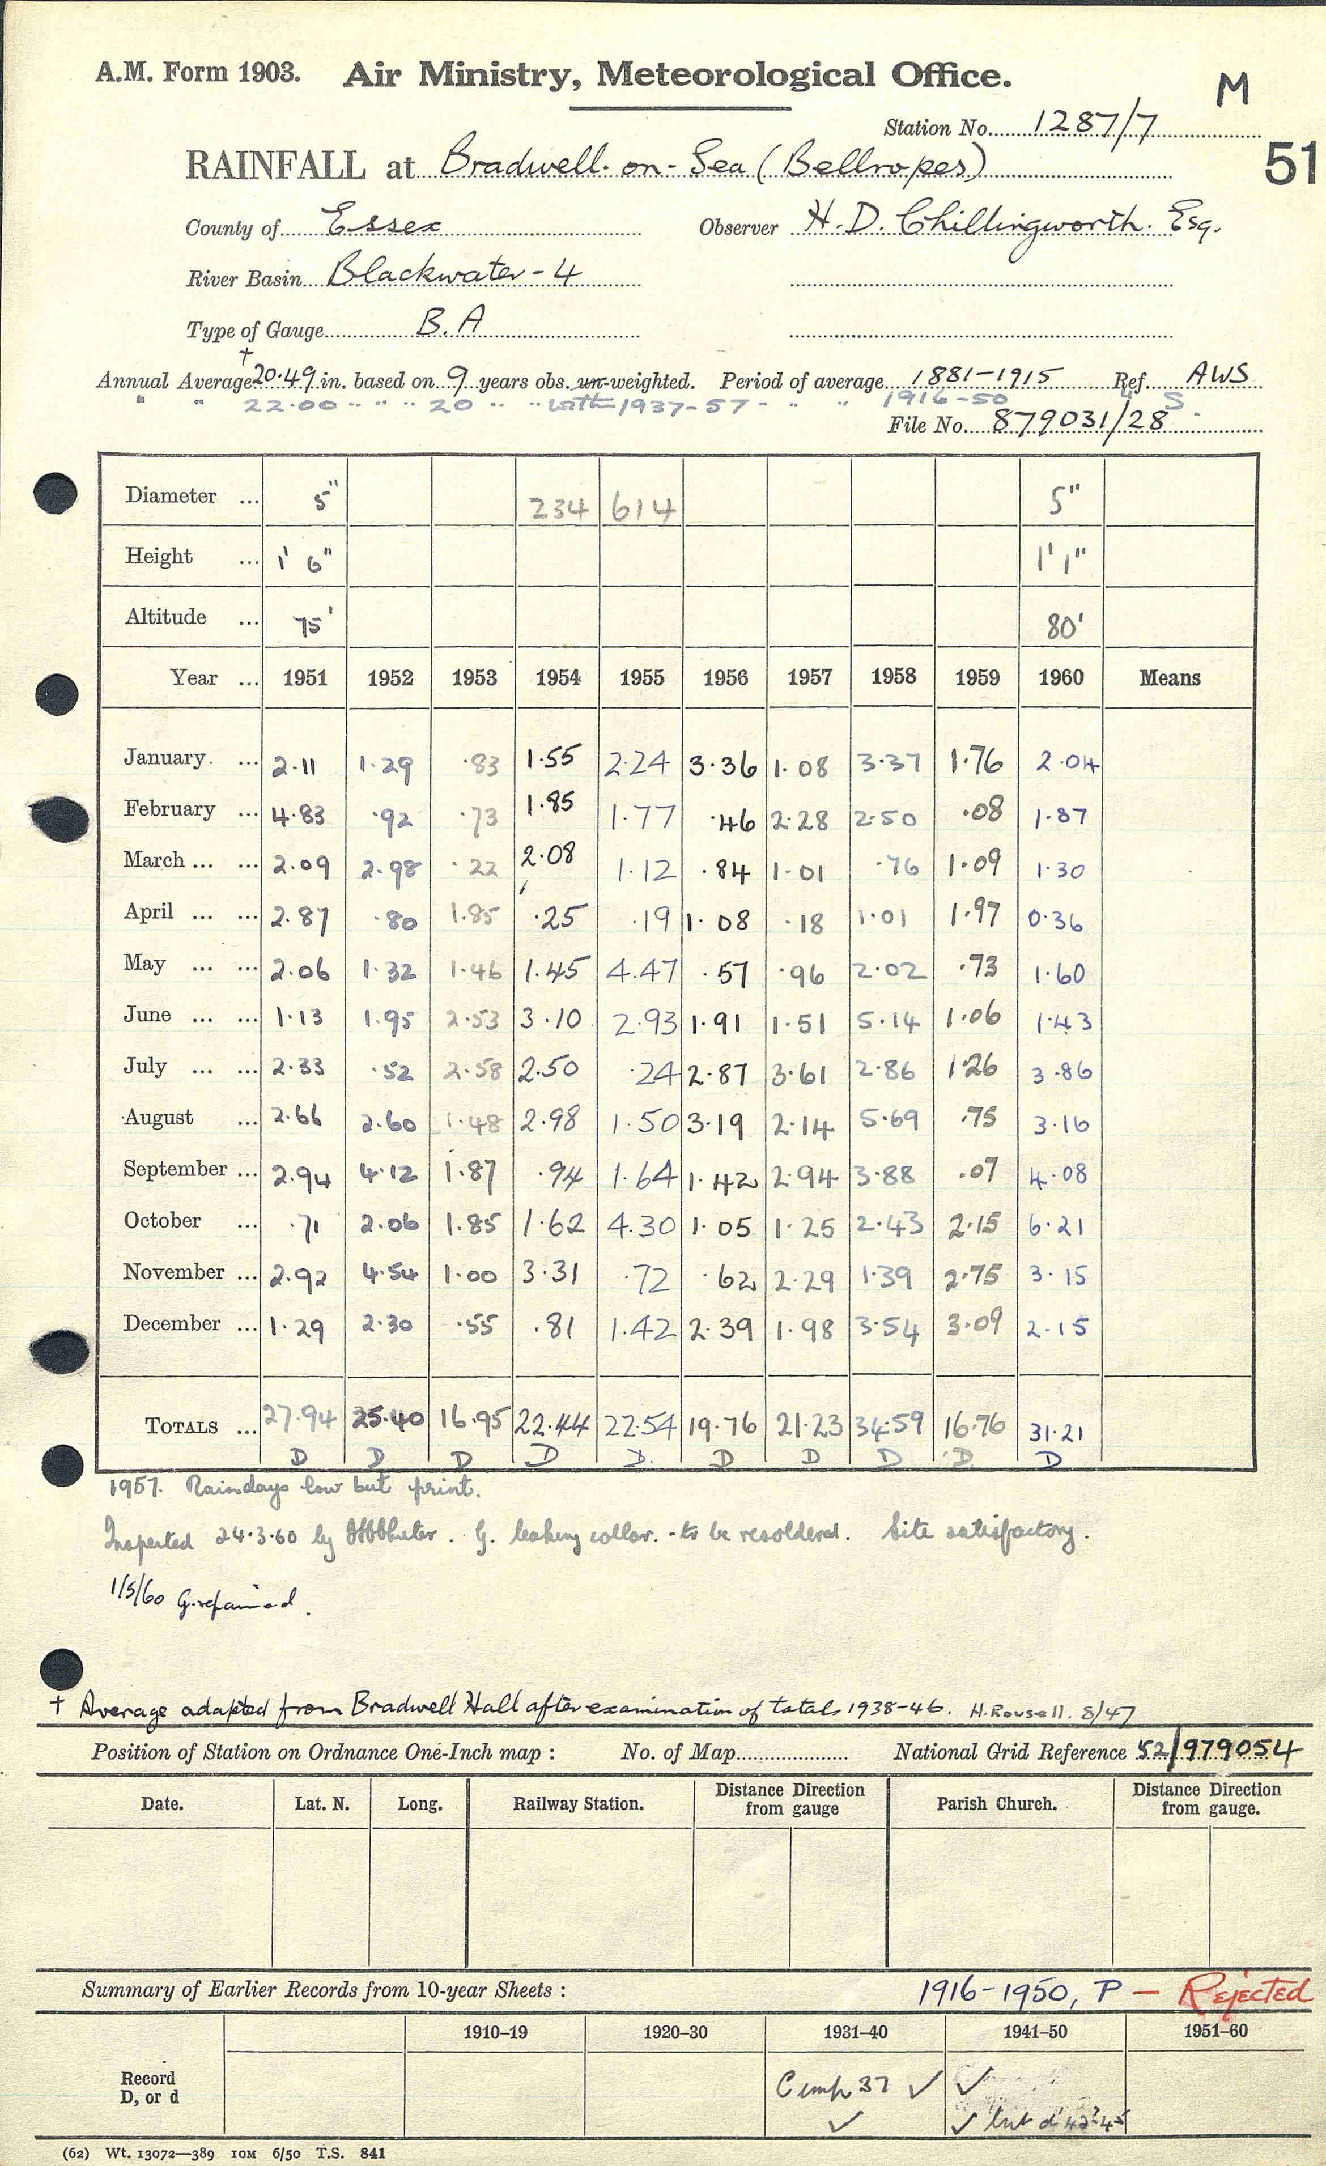 A.M. Form 1903. Air Ministry, Meteorological Office. M
Station No. 1287/7
RAINFALL at Bradwell-on-Sea (Bellropes) 51
County of Essex Observer H.D. Chillingworth. Esq.
River Basin Blackwater-4
Type of Gauge B.A
†
Annual Average 20.49 in. based on 9 years obs. un-weighted. Period of average 1881-1915 Ref. AWS
" " 22.00 " " " 20 " " with 1937-57 - " " 1916-50 " S.
File No. 879031/28
Diameter ... 5" 234 614 5"
Height ... 1' 6" 1' 1"
Altitude ... 75' 80'
Year ... 1951 1952 1953 1954 1955 1956 1957 1958 1959 1960 Means
January. ... 2.11 1.29 .83 1.55 2.24 3.36 1.08 3.37 1.76 2.04
February ... 4.83 .92 .73 1.85 1.77 .46 2.28 2.50 .08 1.87
March ... ... 2.09 2.98 .22 2.08 1.12 .84 1.01 .76 1.09 1.30
April ... ... 2.87 .80 1.85 .25 .19 1.08 .18 1.01 1.97 0.36
May ... ... 2.06 1.32 1.46 1.45 4.47 .57 .96 2.02 .73 1.60
June ... ... 1.13 1.95 2.53 3.10 2.93 1.91 1.51 5.14 1.06 1.43
July ... ... 2.33 .52 2.58 2.50 .24 2.87 3.61 2.86 1.26 3.86
August ... 2.66 2.60 1.48 2.98 1.50 3.19 2.14 5.69 .75 3.16
September ... 2.94 4.12 1.87 .94 1.64 1.42 2.94 3.88 .07 4.08
October ... .71 2.06 1.85 1.62 4.30 1.05 1.25 2.43 2.15 6.21
November ... 2.92 4.54 1.00 3.31 .72 .62 2.29 1.39 2.75 3.15
December ... 1.29 2.30 .55 .81 1.42 2.39 1.98 3.54 3.09 2.15
TOTALS ... 27.94 25.40 16.95 22.44 22.54 19.76 21.23 34.59 16.76 31.21
D D D D D. D D D D. D
1957. Raindays low but print.
Inspected 24.3.60 by . G. leaking collar. - to be resoldered. Site satisfactory.
1/5/60 G. repaired.
† Average adapted from Bradwell Hall after examination of totals 1938-46. H. Rowsell. 8/47
Position of Station on Ordnance One-Inch map : No. of Map National Grid Reference 52/979054
Date. Lat. N. Long. Railway Station. Distance Direction from gauge Parish Church. Distance Direction from gauge.
Summary of Earlier Records from 10-year Sheets : 1916-1950, P — Rejected
1910-19 1920-30 1931-40 1941-50 1951-60
Record D, or d Comp 37 ✓ ✓
✓ ✓ but d 42-45
(62) Wt. 13072—389 10M 6/50 T.S. 841